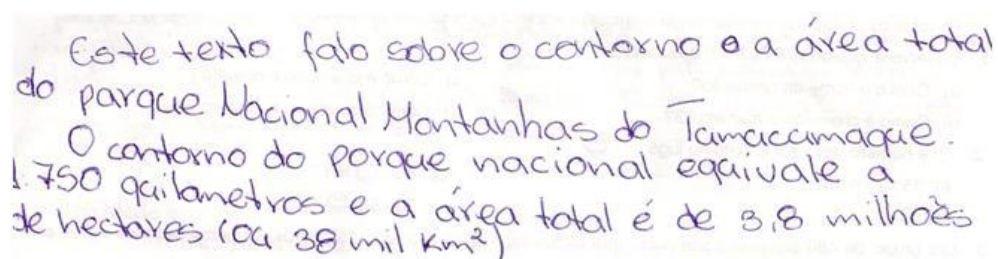 Este texto fala sobre o contorno e a área total
do parque Nacional Montanhas do Tumucumaque.
O contorno do parque nacional equivale a
1.750 quilametros e a área total é de 3,8 milhoēs
de hectares (ou 38 mil Km²)